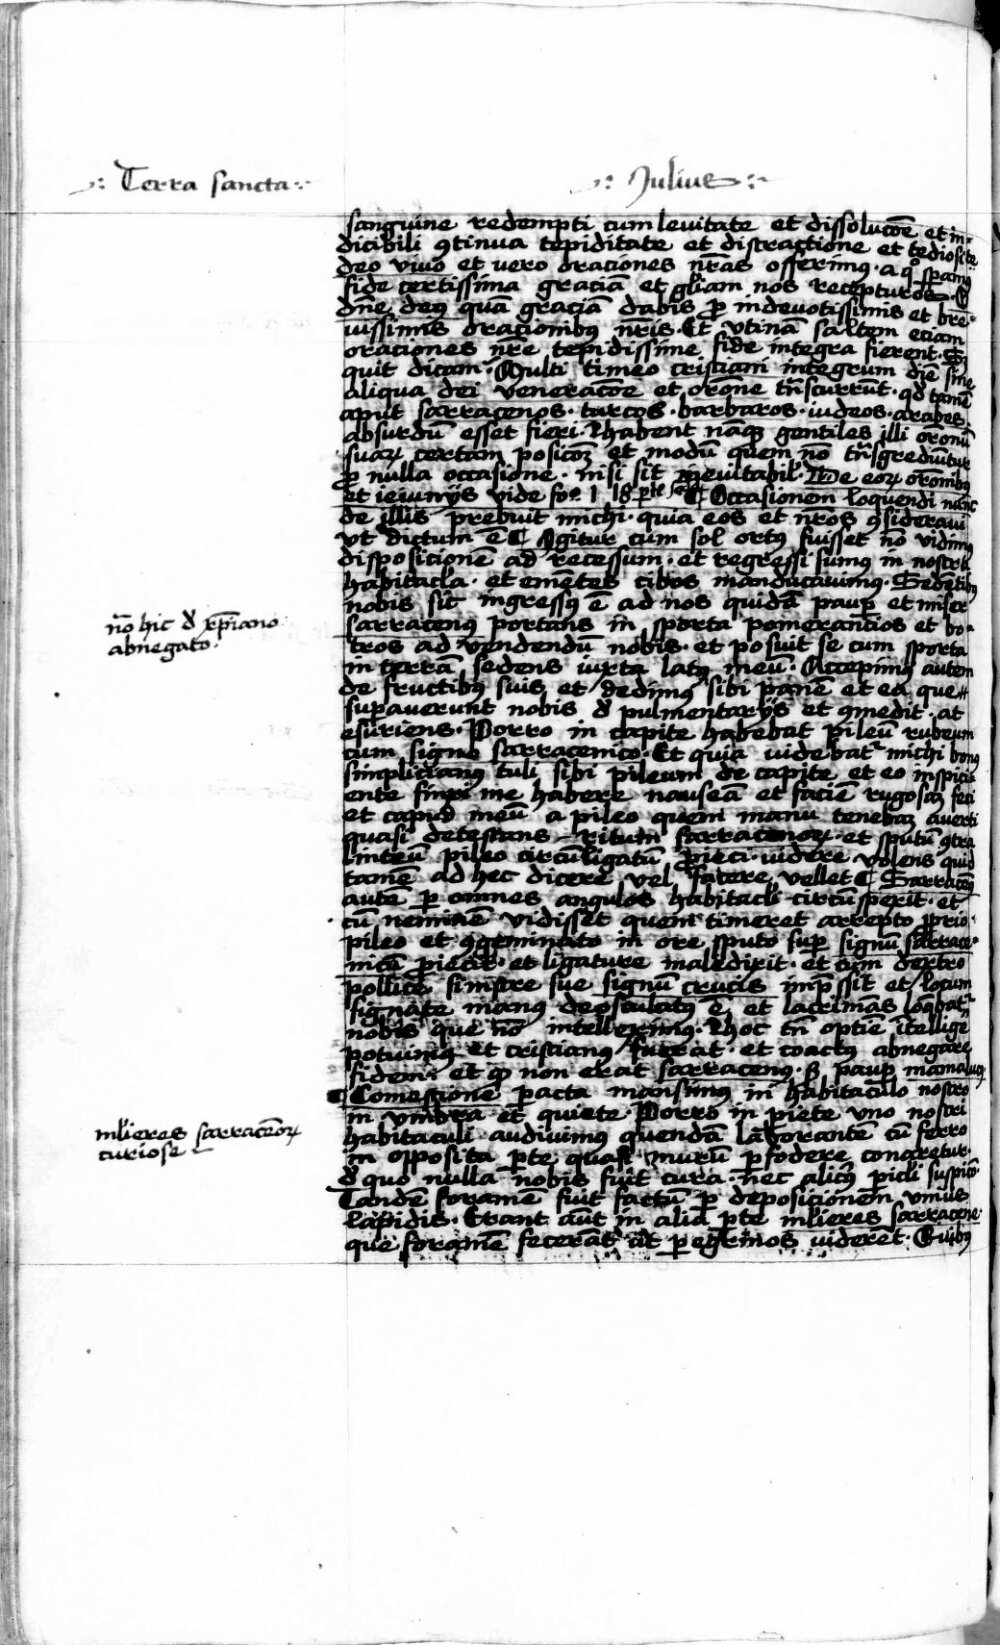 .: Terra sancta :.
.: Julius :.
sanguine redempti cum levitate et dissolucōe et in-
dicibili ꝯtinua tepiditate et distractione et tediositate
deo vivo et vero oraciones nr̄as offerimꝰ · a qͦ spamꝰ
fide certissima graciā et gl̄iam nos recepturos · O
dn̄e deꝰ quā graciā dabis ꝓ indevotissimis et bre-
vissimis oracionibꝰ nr̄is · Et vtinā saltem eciam
oraciones nr̄e tepidissime fide integra fierent · Sꝫ
quit dicam · Multi timeo cristiani integrum diē sine
aliqua dei veneracōe et orōne tn̄scurrūt · qd̄ tamē
aput sarracenos · turcos · barbaros · iudeos · arabes
absurdū esset fieri · Habent naqꝫ gentiles illi orōnū
suaꝝ certam posicōꝫ et modū quem nō tn̄sgrediūtur
ꝑ nulla occasione · nisi sit inevitabil' · De eoꝝ orōnibꝰ
et ieiunijs vide fo. 118 ¶ Occasionem loquendi nunc
de illis prebuit michi · quia eos et nr̄os ꝯsideravi
vt dictum ē ¶ Igitur cum sol ortꝰ fuisset nō vidimꝰ
disposicionē ad recessum · et regressi sumꝰ in nostra
habitacl̄a · et emētes cibos manducavimꝰ · Sedētibꝰ
nobis sic ingressꝰ ē ad nos quidā paupꝑ et miser
sarracenus portans in sporta pomerancios et bo-
tros ad vendendū nobis · et posuit se cum sporta
in terrā sedens iuxta latꝰ meū · Accepimꝰ autem
de fructibꝰ suis et dedimꝰ sibi panē et ea que
suꝑaverunt nobis d̄ pulmentarijs et ꝯmedit · at
esuriens · Porro in capite habebat pileū rubeum
cum signo sarracenico · Et quia videbatʳ michi bonꝰ
simplicianꝰ tuli sibi pileum de capite et eo inspici-
ente finxi me habere nauseā et faciē rugosaꝫ feci
et caput meū a pileo quem manu tenebaꝫ averti
quasi detestans ritum sarracenoꝝ · et sputū ꝯtra
linteū pileo circūligatū ꝓieci · videre volens quid
tamē ad hec dicere vel facere vellet ¶ Sarracenꝰ
autē ꝑ omnes angulos habitacl̄i circūspexit · et
cū neminē vidisset quem timeret arrepto ꝓprio
pileo et ꝯgeminato in ore sputo suꝑ signū sarrace-
nicū ꝓiecit · et ligature maledixit · et cum dextro
pollice sinistre sue signū crucis imp̄ssit et locum
signate manus deosculatꝰ ē et lacrimās loq̄batʳ
nobis que nō intelleximꝰ · Hoc tn̄ optīe ītelligē
potuimꝰ et cristianꝰ fuerat · et coactꝰ abnegare
fidem · et ꝙ non erat sarracenꝰ · sꝫ paupꝑ mamalucꝰ
¶ Comestione facta mansimus in habitaculo nostro
in vmbra et quiete · Porro in pariete vno nostri
habitaculi audivimus quendā laborantē cū ferro
in opposita ꝑte quasi murū ꝑfodere conaretur ·
d̄ quo nulla nobis fuit cura · nec alicꝰ pericl̄i suspicō
Tandē foramē fuit factū ꝑ deposicionem vnius
lapidis · Erant aūt in alia ꝑte ml̄ieres sarracene
que foramē fecerāt vt ꝑegrinos viderēt · Quibꝰ
nō hic d̄ xp̄iano
abnegato.
ml̄ieres sarracēoꝝ
curiose